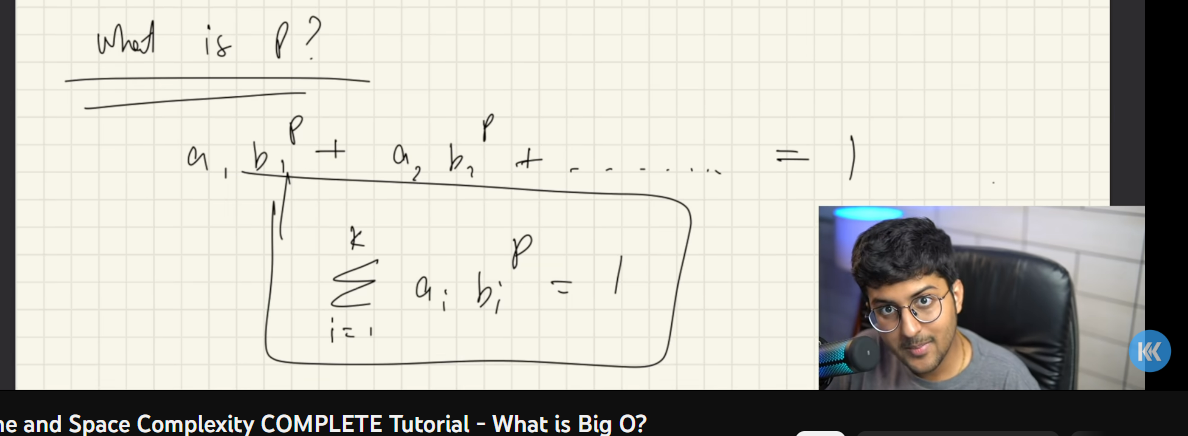 What is P?
a₁ b₁ᴾ + a₂ b₂ᴾ + ........ = 1
k
Σ aᵢ bᵢᴾ = 1
i=1
KK
ne and Space Complexity COMPLETE Tutorial - What is Big O?